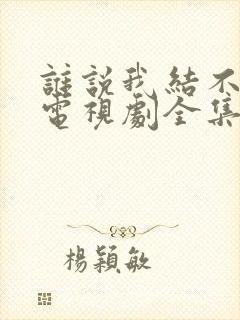 誰說我結不
電視劇全集
楊穎敏